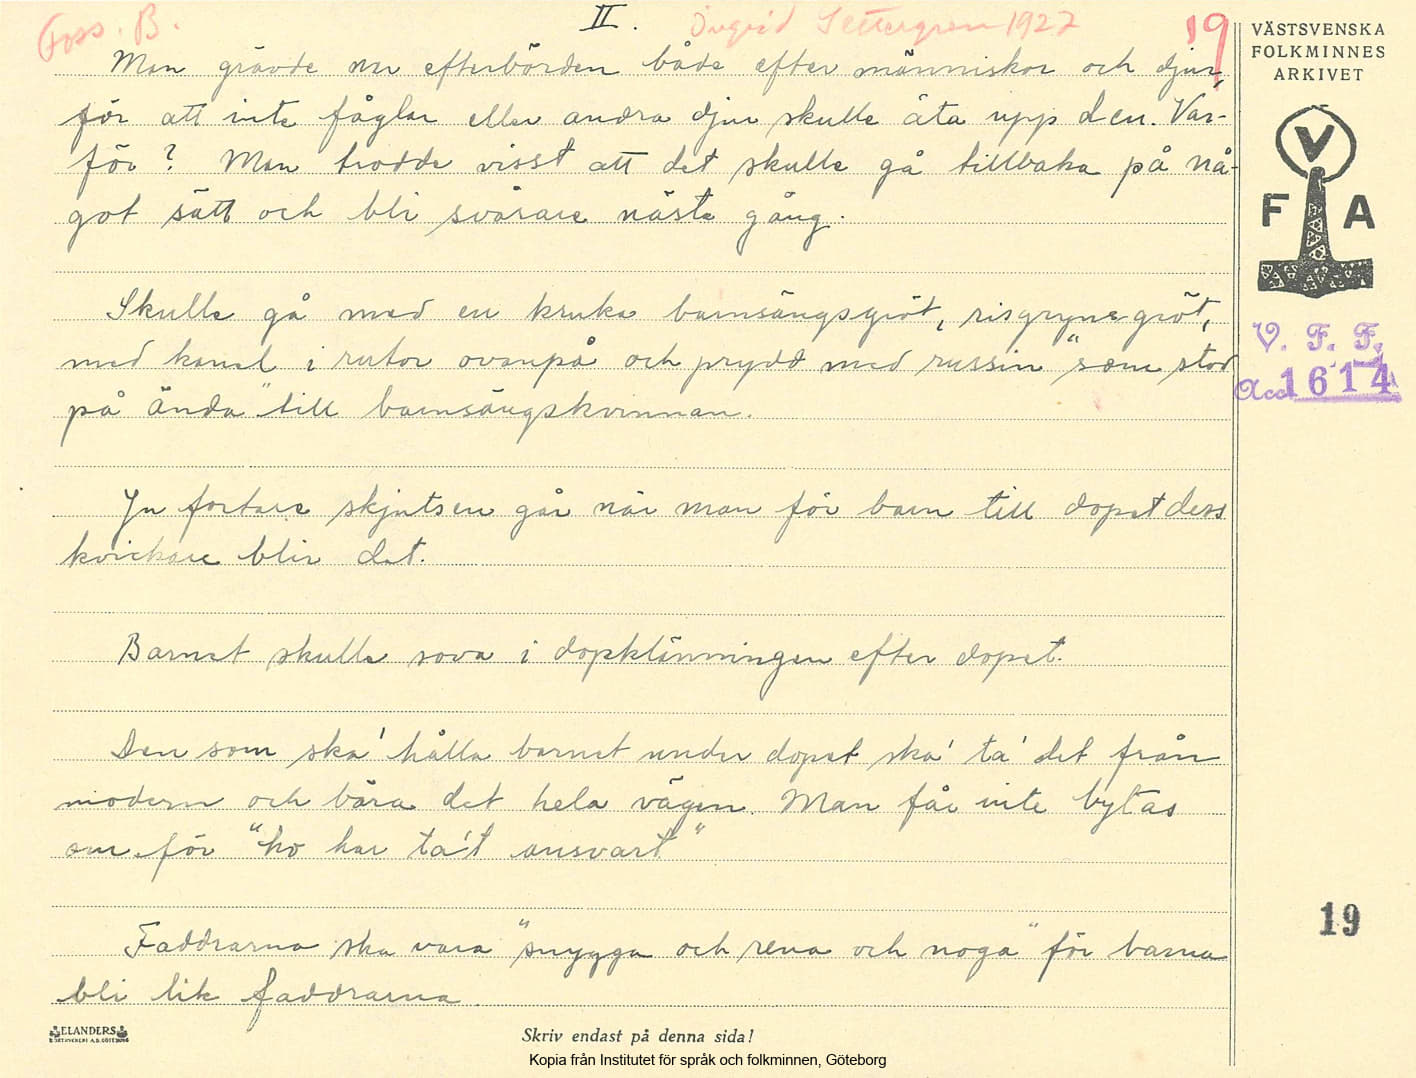 Foss. B.
II.
Ingrid Settergren 1927
19
Man grävde ner efterbörden både efter människor och djur,
för att inte fåglar eller andra djur skulle äta upp den. Var-
för? Man trodde visst att det skulle gå tillbaka på nå-
got sätt och bli svårare nästa gång.
Skulle gå med en kruka barnsängsgröt, risgrynsgröt,
med kanel i rutor ovanpå och prydd med russin "som stod
på ända" till barnsängskvinnan.
Ju fortare skjutsen går när man för barn till dopet dess
kvickare blir det.
Barnet skulle sova i dopklänningen efter dopet.
Den som ska' hålla barnet under dopet ska' ta' det från
modern och bära det hela vägen. Man får inte bytas
om för "ho har ta't ansvart"
Faddrarna ska vara "snygga och rena och noga" för barna
bli lik faddrarna.
VÄSTSVENSKA
FOLKMINNES
ARKIVET
V
F A
V. F. F.
Acc 1614
19
ELANDERS
BOKTRYCKERI A.B. GÖTEBORG
Skriv endast på denna sida!
Kopia från Institutet för språk och folkminnen, Göteborg